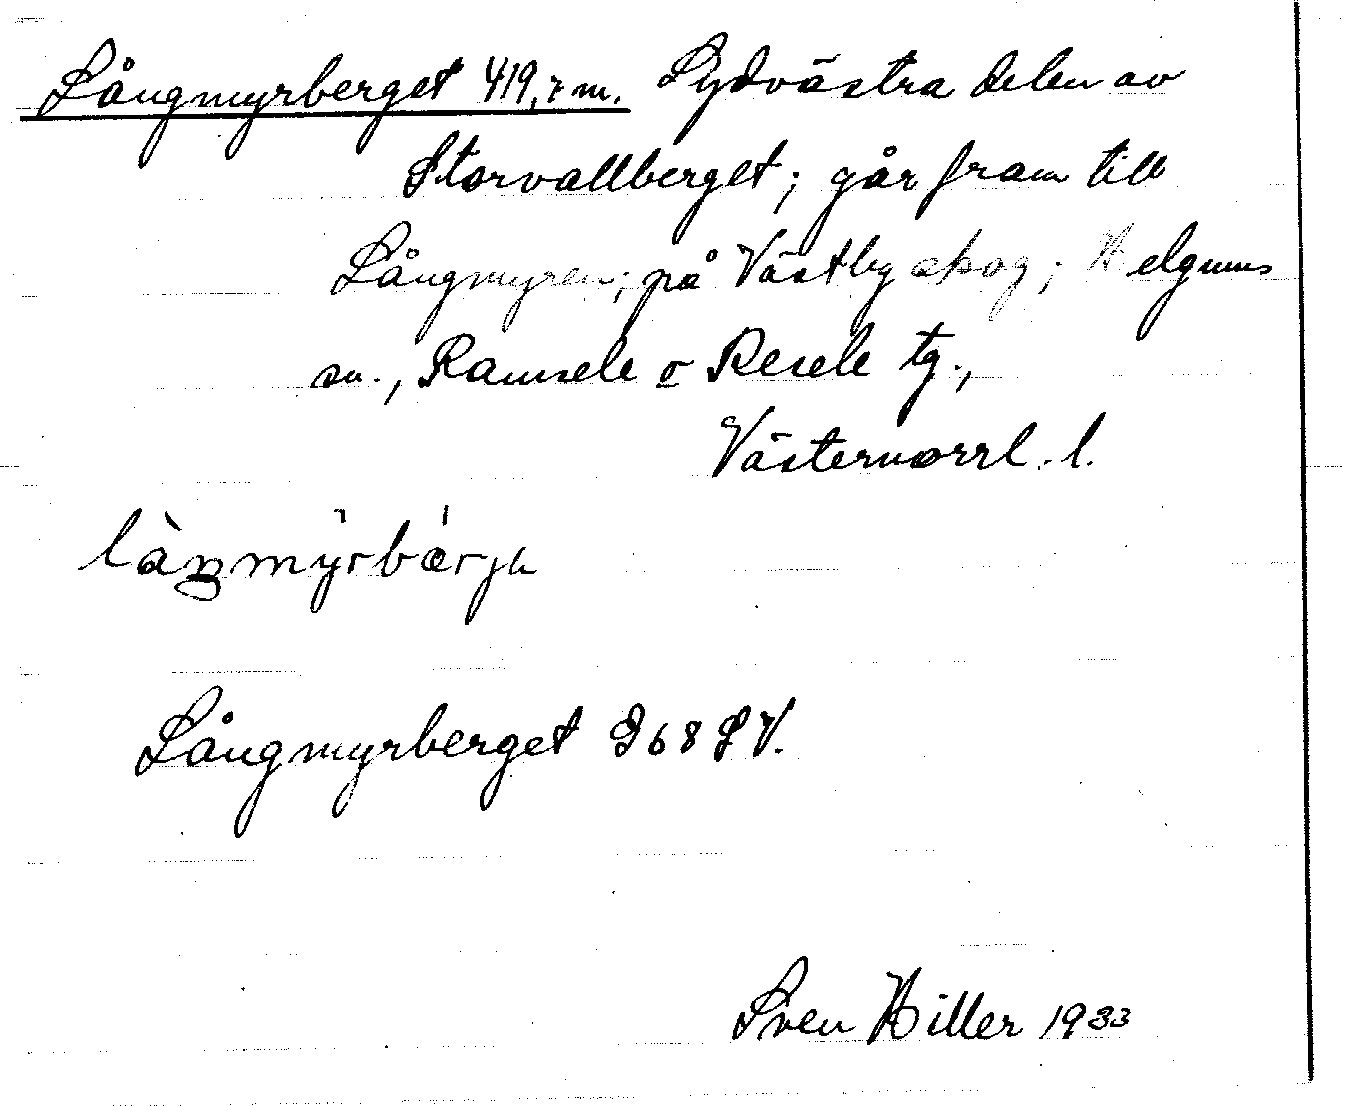 Långmyrberget 419,7 m. Sydvästra delen av
Storvallberget; går fram till
Långmyren; på Västby skog; Helgums
sn., Ramsele o Resele tg.,
Västernorrl. l.
Långmyrberget G 68 SV.
Sven Hiller 1933